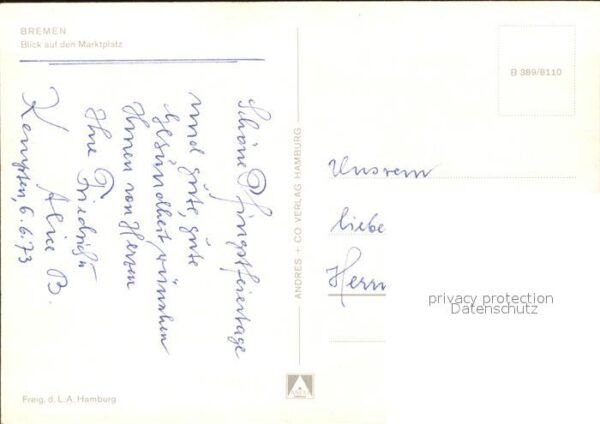 BREMEN
Blick auf den Marktplatz
Schöne Pfingstfeiertage
und gute, gute
Gesundheit wünschen
Ihnen von Herzen
Ihre Friedrich
Alice B.
Kempten, 6.6.73
Freig. d. L.A. Hamburg
ANDRES + CO VERLAG HAMBURG
B 389/8110
Unsrem
liebe
Herrn
privacy protection
Datenschutz